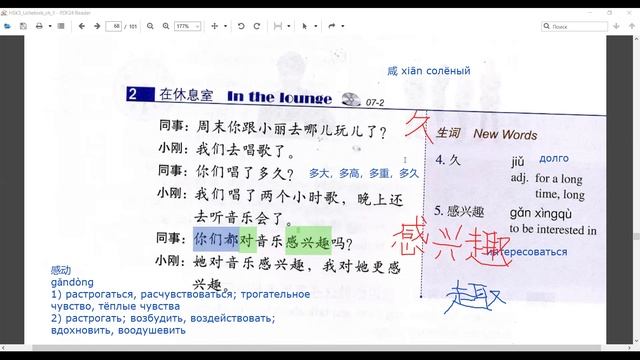 68 / 101
177%
Поиск
咸 xiān солёный
2 在休息室 In the lounge 07-2
同事：周末你跟小丽去哪儿玩儿了？
小刚：我们去唱歌了。
同事：你们唱了多久？ 多大，多高，多重，多久
小刚：我们唱了两个小时歌，晚上还
去听音乐会了。
同事：你们都对音乐感兴趣吗？
小刚：她对音乐感兴趣，我对她更感
兴趣。
久
生词 New Words
4. 久 jiǔ долго
adj. for a long
time, long
5. 感兴趣 gǎn xìngqù
to be interested in
интересоваться
感兴趣
趣
感动
gǎndòng
1) растрогаться, расчувствоваться; трогательное
чувство, тёплые чувства
2) растрогать; возбудить, воздействовать;
вдохновить, воодушевить